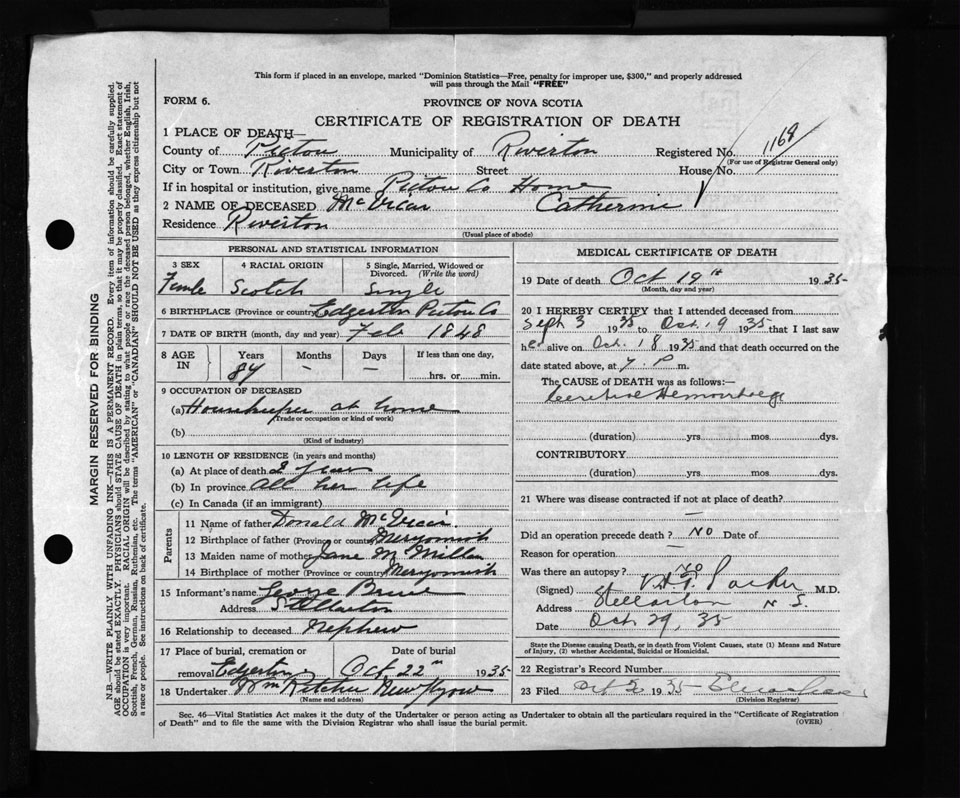 This form if placed in an envelope, marked "Dominion Statistics—Free, penalty for improper use, $300," and properly addressed
will pass through the Mail "FREE"
FORM 6.
PROVINCE OF NOVA SCOTIA
CERTIFICATE OF REGISTRATION OF DEATH
1 PLACE OF DEATH—
County of Pictou Municipality of Riverton Registered No. 1168
(For use of Registrar General only)
City or Town Riverton Street House No.
If in hospital or institution, give name Pictou Co Home
2 NAME OF DECEASED McVicar Catherine
Residence Riverton
(Usual place of abode)
PERSONAL AND STATISTICAL INFORMATION
3 SEX 4 RACIAL ORIGIN 5 Single, Married, Widowed or
Divorced. (Write the word)
Female Scotch Single
6 BIRTHPLACE (Province or country) Edgerton Pictou Co
7 DATE OF BIRTH (month, day and year) Feb 1848
8 AGE IN Years Months Days If less than one day,
84 — — hrs. or min.
9 OCCUPATION OF DECEASED
(a) Housekeeper at home
(Trade or occupation or kind of work)
(b)
(Kind of industry)
10 LENGTH OF RESIDENCE (in years and months)
(a) At place of death 2 year
(b) In province all her life
(c) In Canada (if an immigrant)
Parents
11 Name of father Donald McVicar
12 Birthplace of father (Province or country) Merigomish
13 Maiden name of mother Jane McMillan
14 Birthplace of mother (Province or country) Merigomish
15 Informant's name George Bruce
Address Stellarton
16 Relationship to deceased Nephew
17 Place of burial, cremation or Date of burial
removal Edgerton Oct 22nd 1935
18 Undertaker Wm Ritchie New Glasgow
(Name and address)
MEDICAL CERTIFICATE OF DEATH
19 Date of death Oct 19th 1935
(Month, day and year)
20 I HEREBY CERTIFY that I attended deceased from
Sept 3 1935 to Oct. 19 1935 that I last saw
her alive on Oct. 18 1935 and that death occurred on the
date stated above, at 7 P m.
The CAUSE OF DEATH was as follows:—
Cerebral Hemorrhage
(duration) yrs. mos. dys.
CONTRIBUTORY
(duration) yrs. mos. dys.
21 Where was disease contracted if not at place of death?
—
Did an operation precede death? NO Date of
Reason for operation —
Was there an autopsy? NO
(Signed) Parker M.D.
Address Stellarton N S.
Date Oct 29, 35
State the Disease causing Death, or in death from Violent Causes, state (1) Means and Nature
of Injury, (2) whether Accidental, Suicidal or Homicidal.
22 Registrar's Record Number
23 Filed Oct 1935
(Division Registrar)
Sec. 46—Vital Statistics Act makes it the duty of the Undertaker or person acting as Undertaker to obtain all the particulars required in the "Certificate of Registration
of Death" and to file the same with the Division Registrar who shall issue the burial permit. (OVER)
MARGIN RESERVED FOR BINDING
N.B.—WRITE PLAINLY WITH UNFADING INK—THIS IS A PERMANENT RECORD. Every item of information should be carefully supplied.
AGE should be stated EXACTLY. PHYSICIANS should STATE CAUSE OF DEATH in plain terms, so that it may be properly classified. Exact statement of
OCCUPATION is very important. RACIAL ORIGIN will be described by stating to what people or race the deceased person belonged, whether English, Irish,
Scottish, French, German, Russian, Ruthenian, etc. The terms "AMERICAN" or "CANADIAN" SHOULD NOT BE USED as they express citizenship but not
a race or people. See instructions on back of certificate.